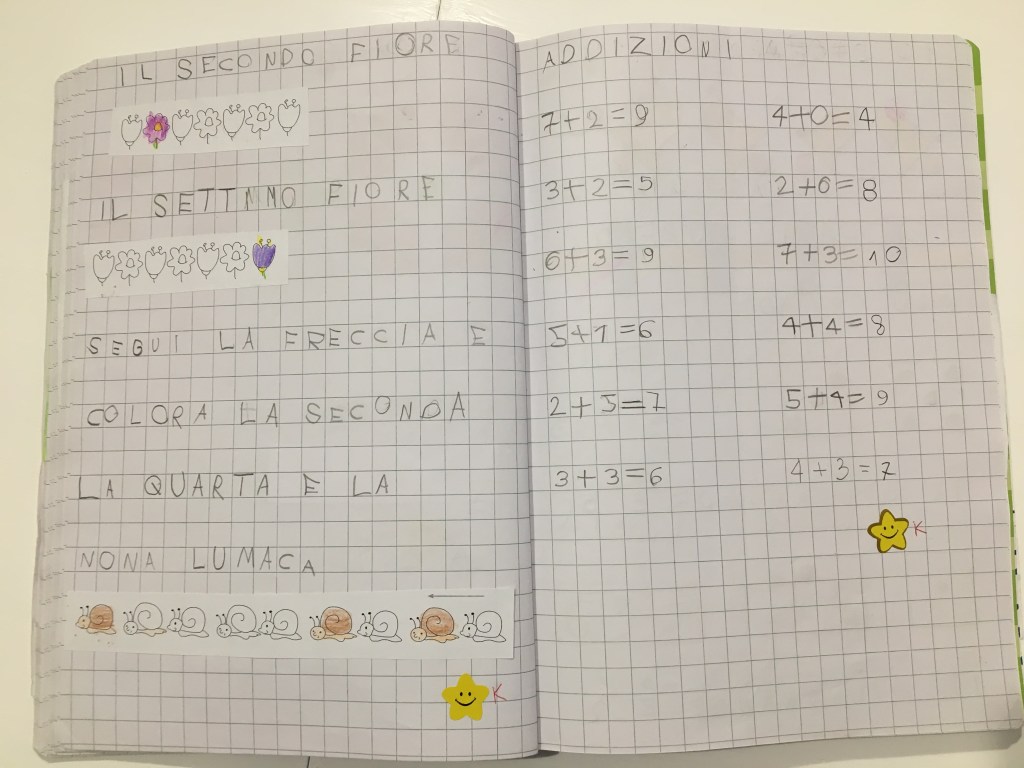 IL SECONDO FIORE
IL SETTIMO FIORE
SEGUI LA FRECCIA E
COLORA LA SECONDA
LA QUARTA E LA
NONA LUMACA
K
ADDIZIONI
7+2=9 4+0=4
3+2=5 2+6=8
6+3=9 7+3=10
5+1=6 4+4=8
2+5=7 5+4=9
3+3=6 4+3=7
K